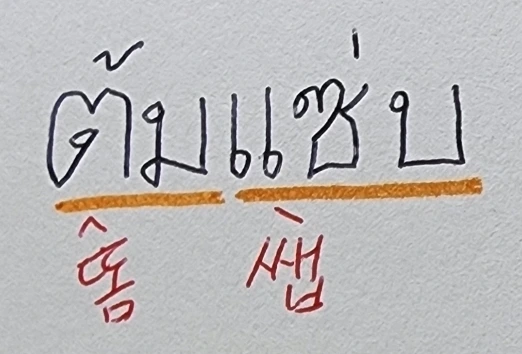 ต้มแซ่บ
똠 쌥